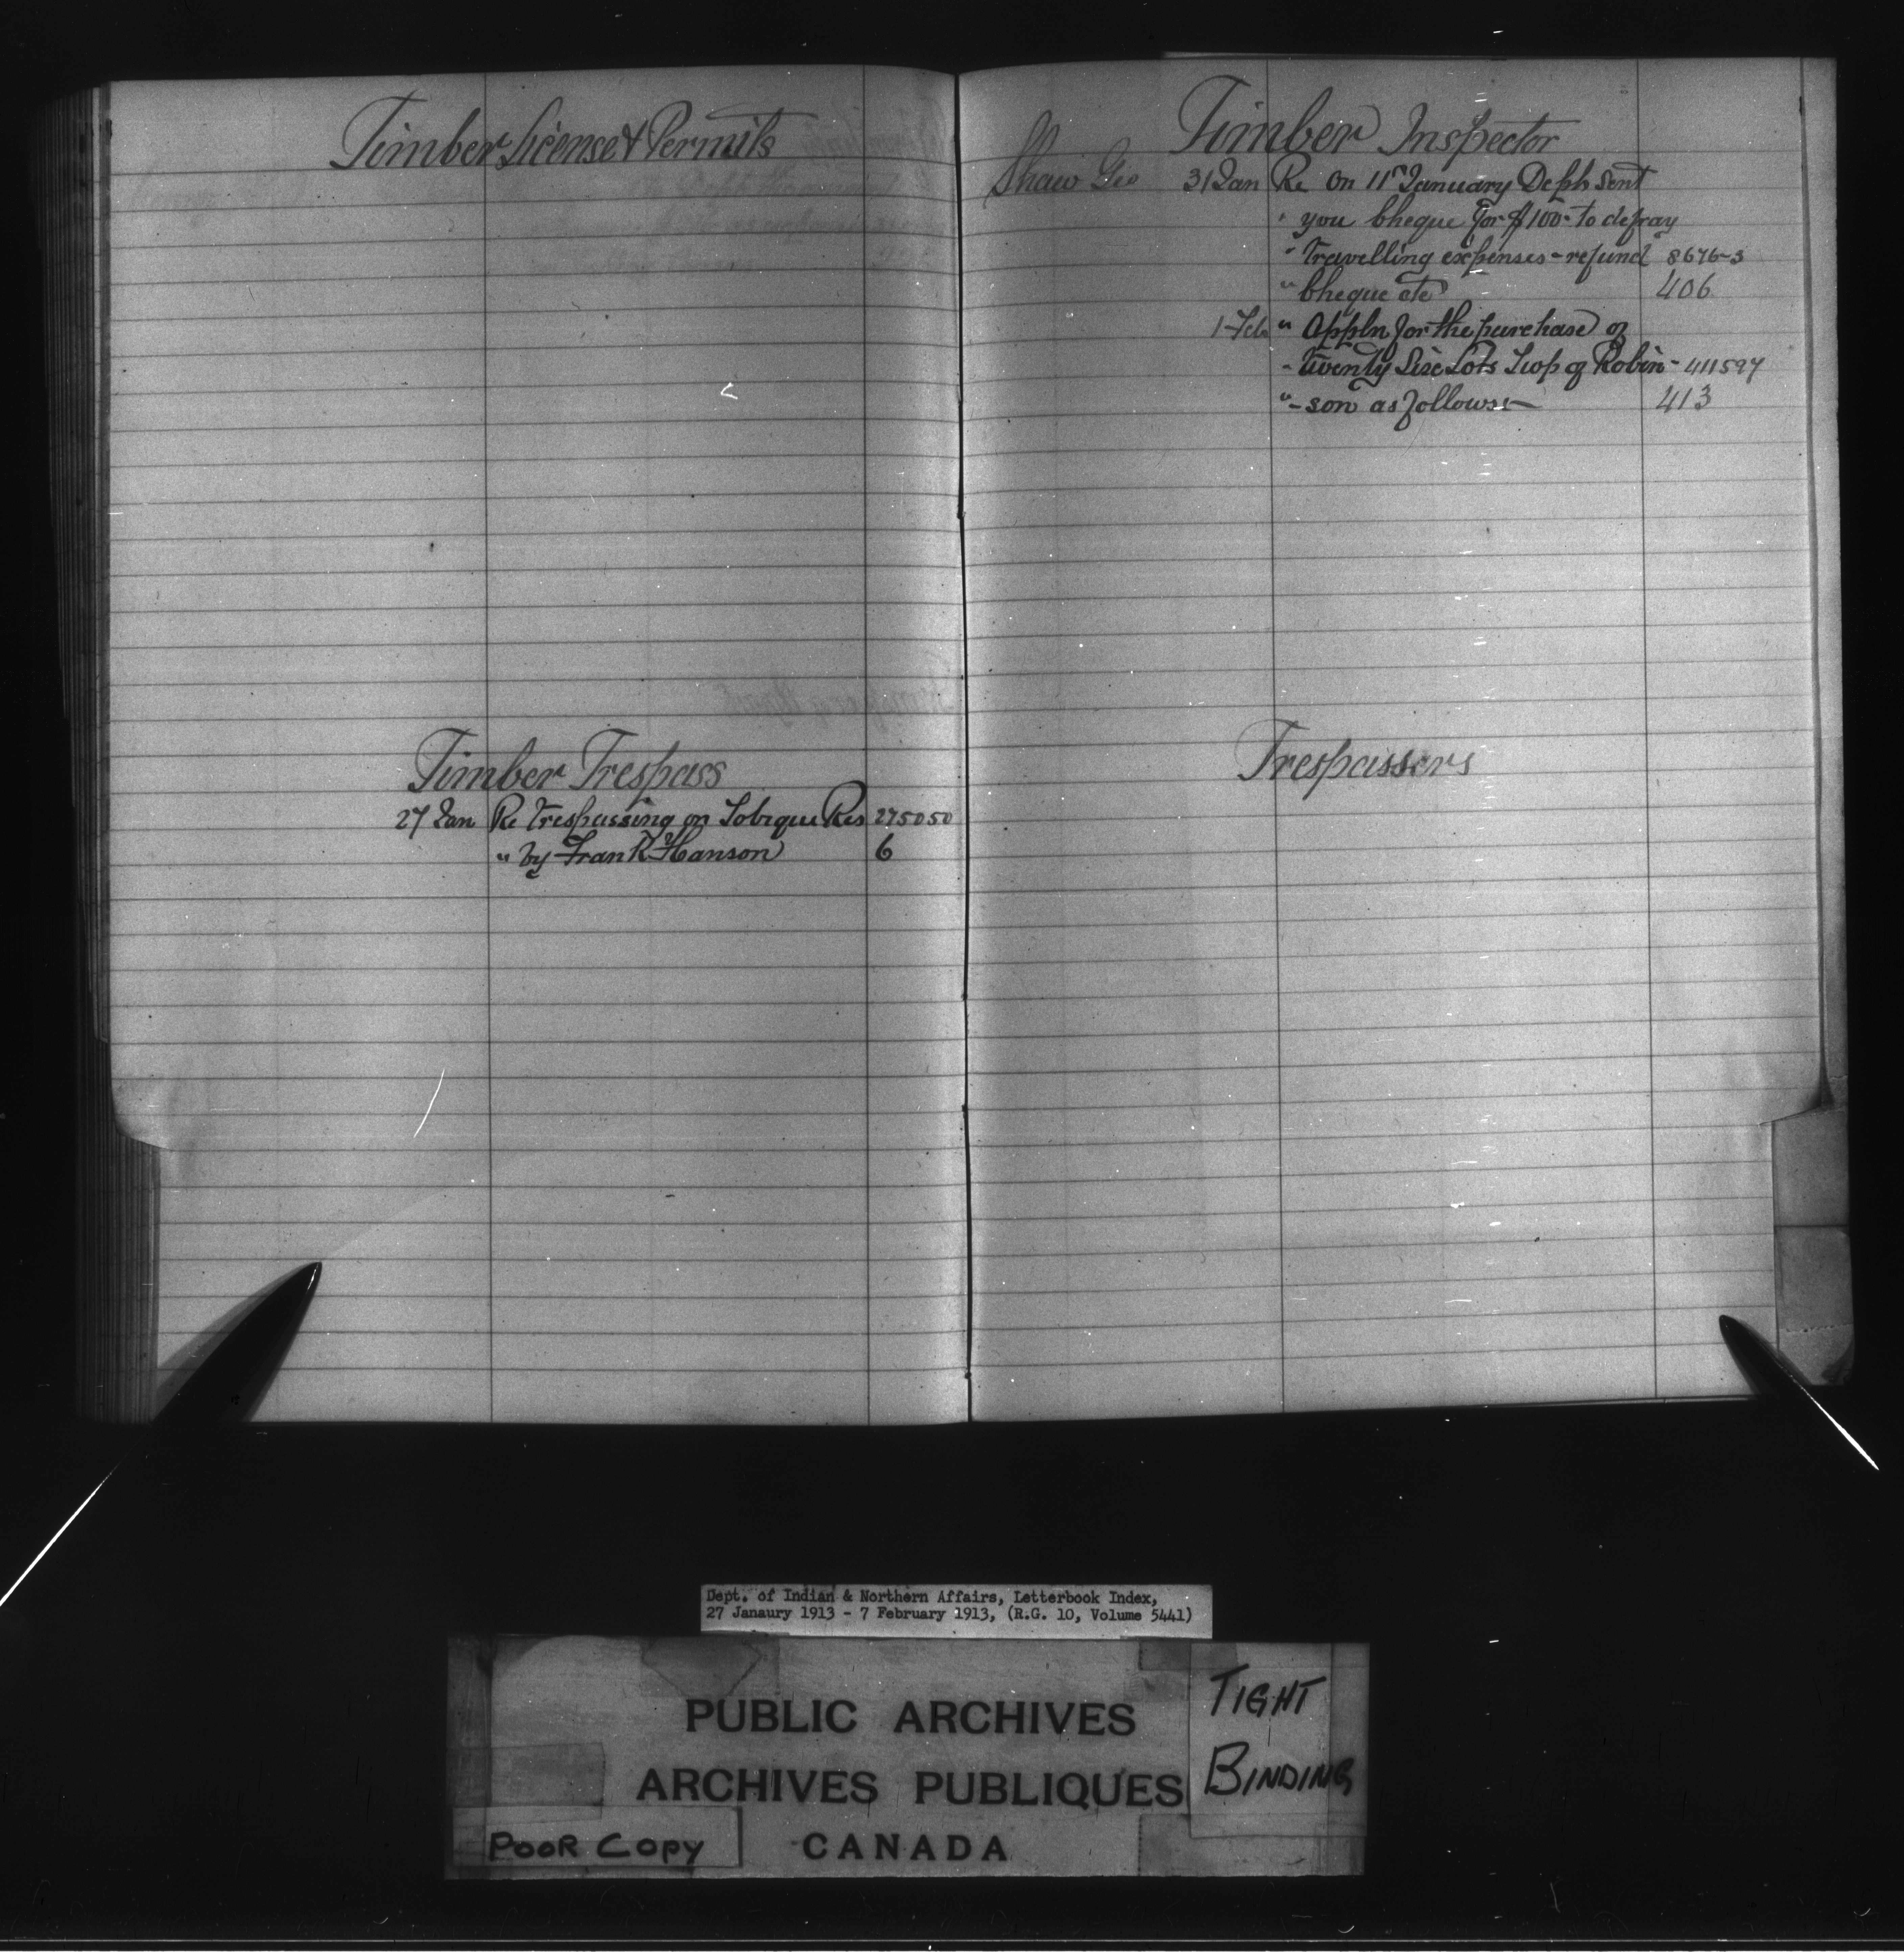 Timber License & Permits
Timber Trespass
27 Jan Re Trespassing on Tobique Res 275050
" by Frank Hanson 6
Timber Inspector
Shaw Geo 31 Jan Re On 11th January Deptn Sent
" you Cheque for $100- to defray
" Travelling expenses - refund 8676-3
" Cheque etc 406
1 Feb " Appln for the purchase of
" Twenty Six Lots Twp of Robin- 411597
" -son as follows:- 413
Trespassers
Dept. of Indian & Northern Affairs, Letterbook Index,
27 Janaury 1913 - 7 February 1913, (R.G. 10, Volume 5441)
PUBLIC ARCHIVES
ARCHIVES PUBLIQUES
CANADA
TIGHT
BINDING
POOR COPY